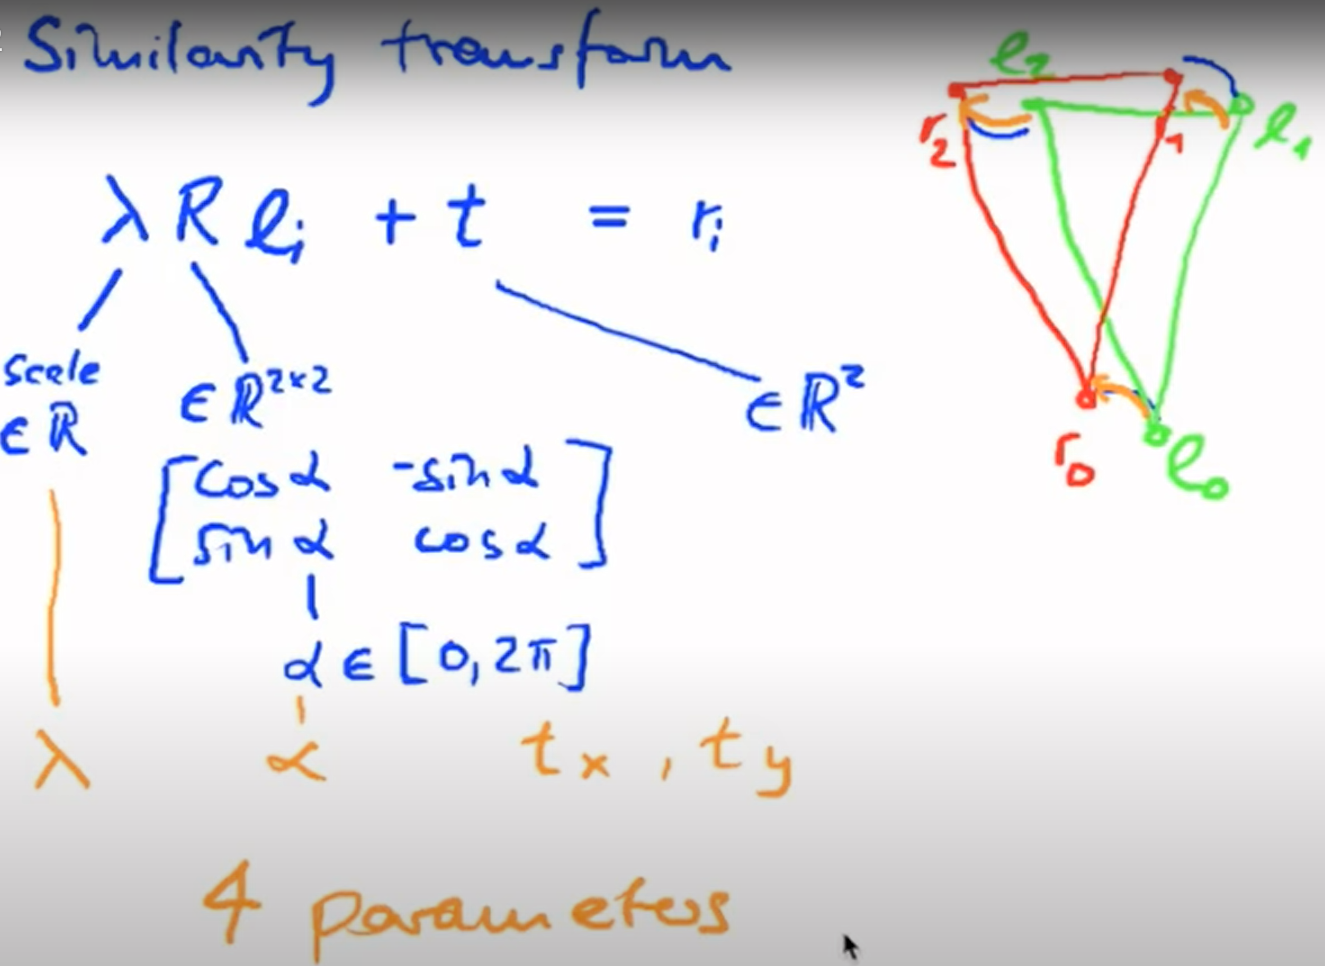 Similarity transform
λ R lᵢ + t = rᵢ
scale
∈ ℝ
∈ ℝ²ˣ²
∈ ℝ²
[cos α -sin α
sin α cos α]
α ∈ [0, 2π]
λ α tx , ty
4 parameters
l₂
r₂
1
l₁
r₀
l₀